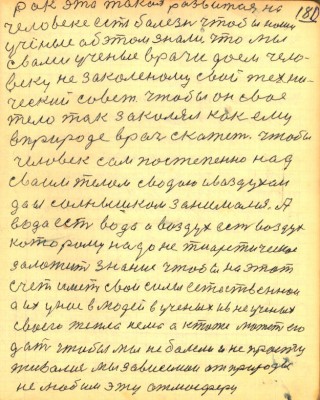 Рак эта такая развитая на 180
человеке есть балезнь чтобы наши
учёные об этом знали что мы
с вами ученые врачи даем чело-
веку не закаленому свой техни-
ческий совет. чтобы он свое
тело так закалял как ему
в природе врач скажет. чтобы
человек сам постепенно над
своим телом с водою и воздухом
да и солнышком занимался. А
вода есть вода а воздух есть воздух
которому надо не тиаретически
заложит знание чтобы на этот
счет имет свои силы естественнои
а их у нас в людей в ученых и в неученых
своего тепла нема а кто их может
дат чтобы мы не балели и не просту
живалися мы зависимои от природы
не любим эту атмосферу